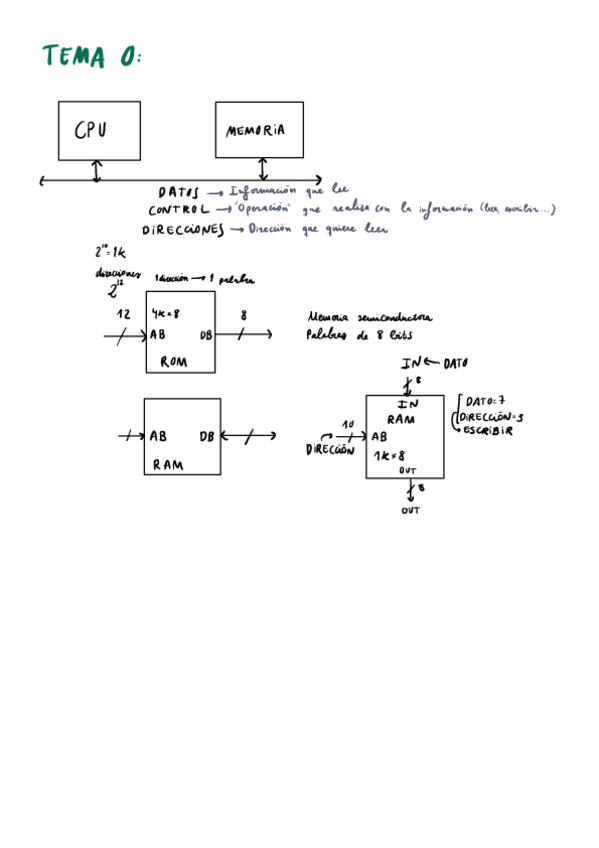 TEMA 0:
CPU
MEMORIA
DATOS → Información que lee
CONTROL → "Operación" que realiza con la información (leer, escribir...)
DIRECCIONES → Dirección que quiere leer
2¹⁰=1k
direcciones 1 dirección → 1 palabra
2¹²
12 4k×8 8
AB DB
ROM
Memoria semiconductora
Palabras de 8 bits
IN ← DATO
8
AB DB
RAM
IN
RAM
10
AB
DIRECCIÓN
1k×8
OUT
8
OUT
DATO=7
DIRECCIÓN=3
ESCRIBIR